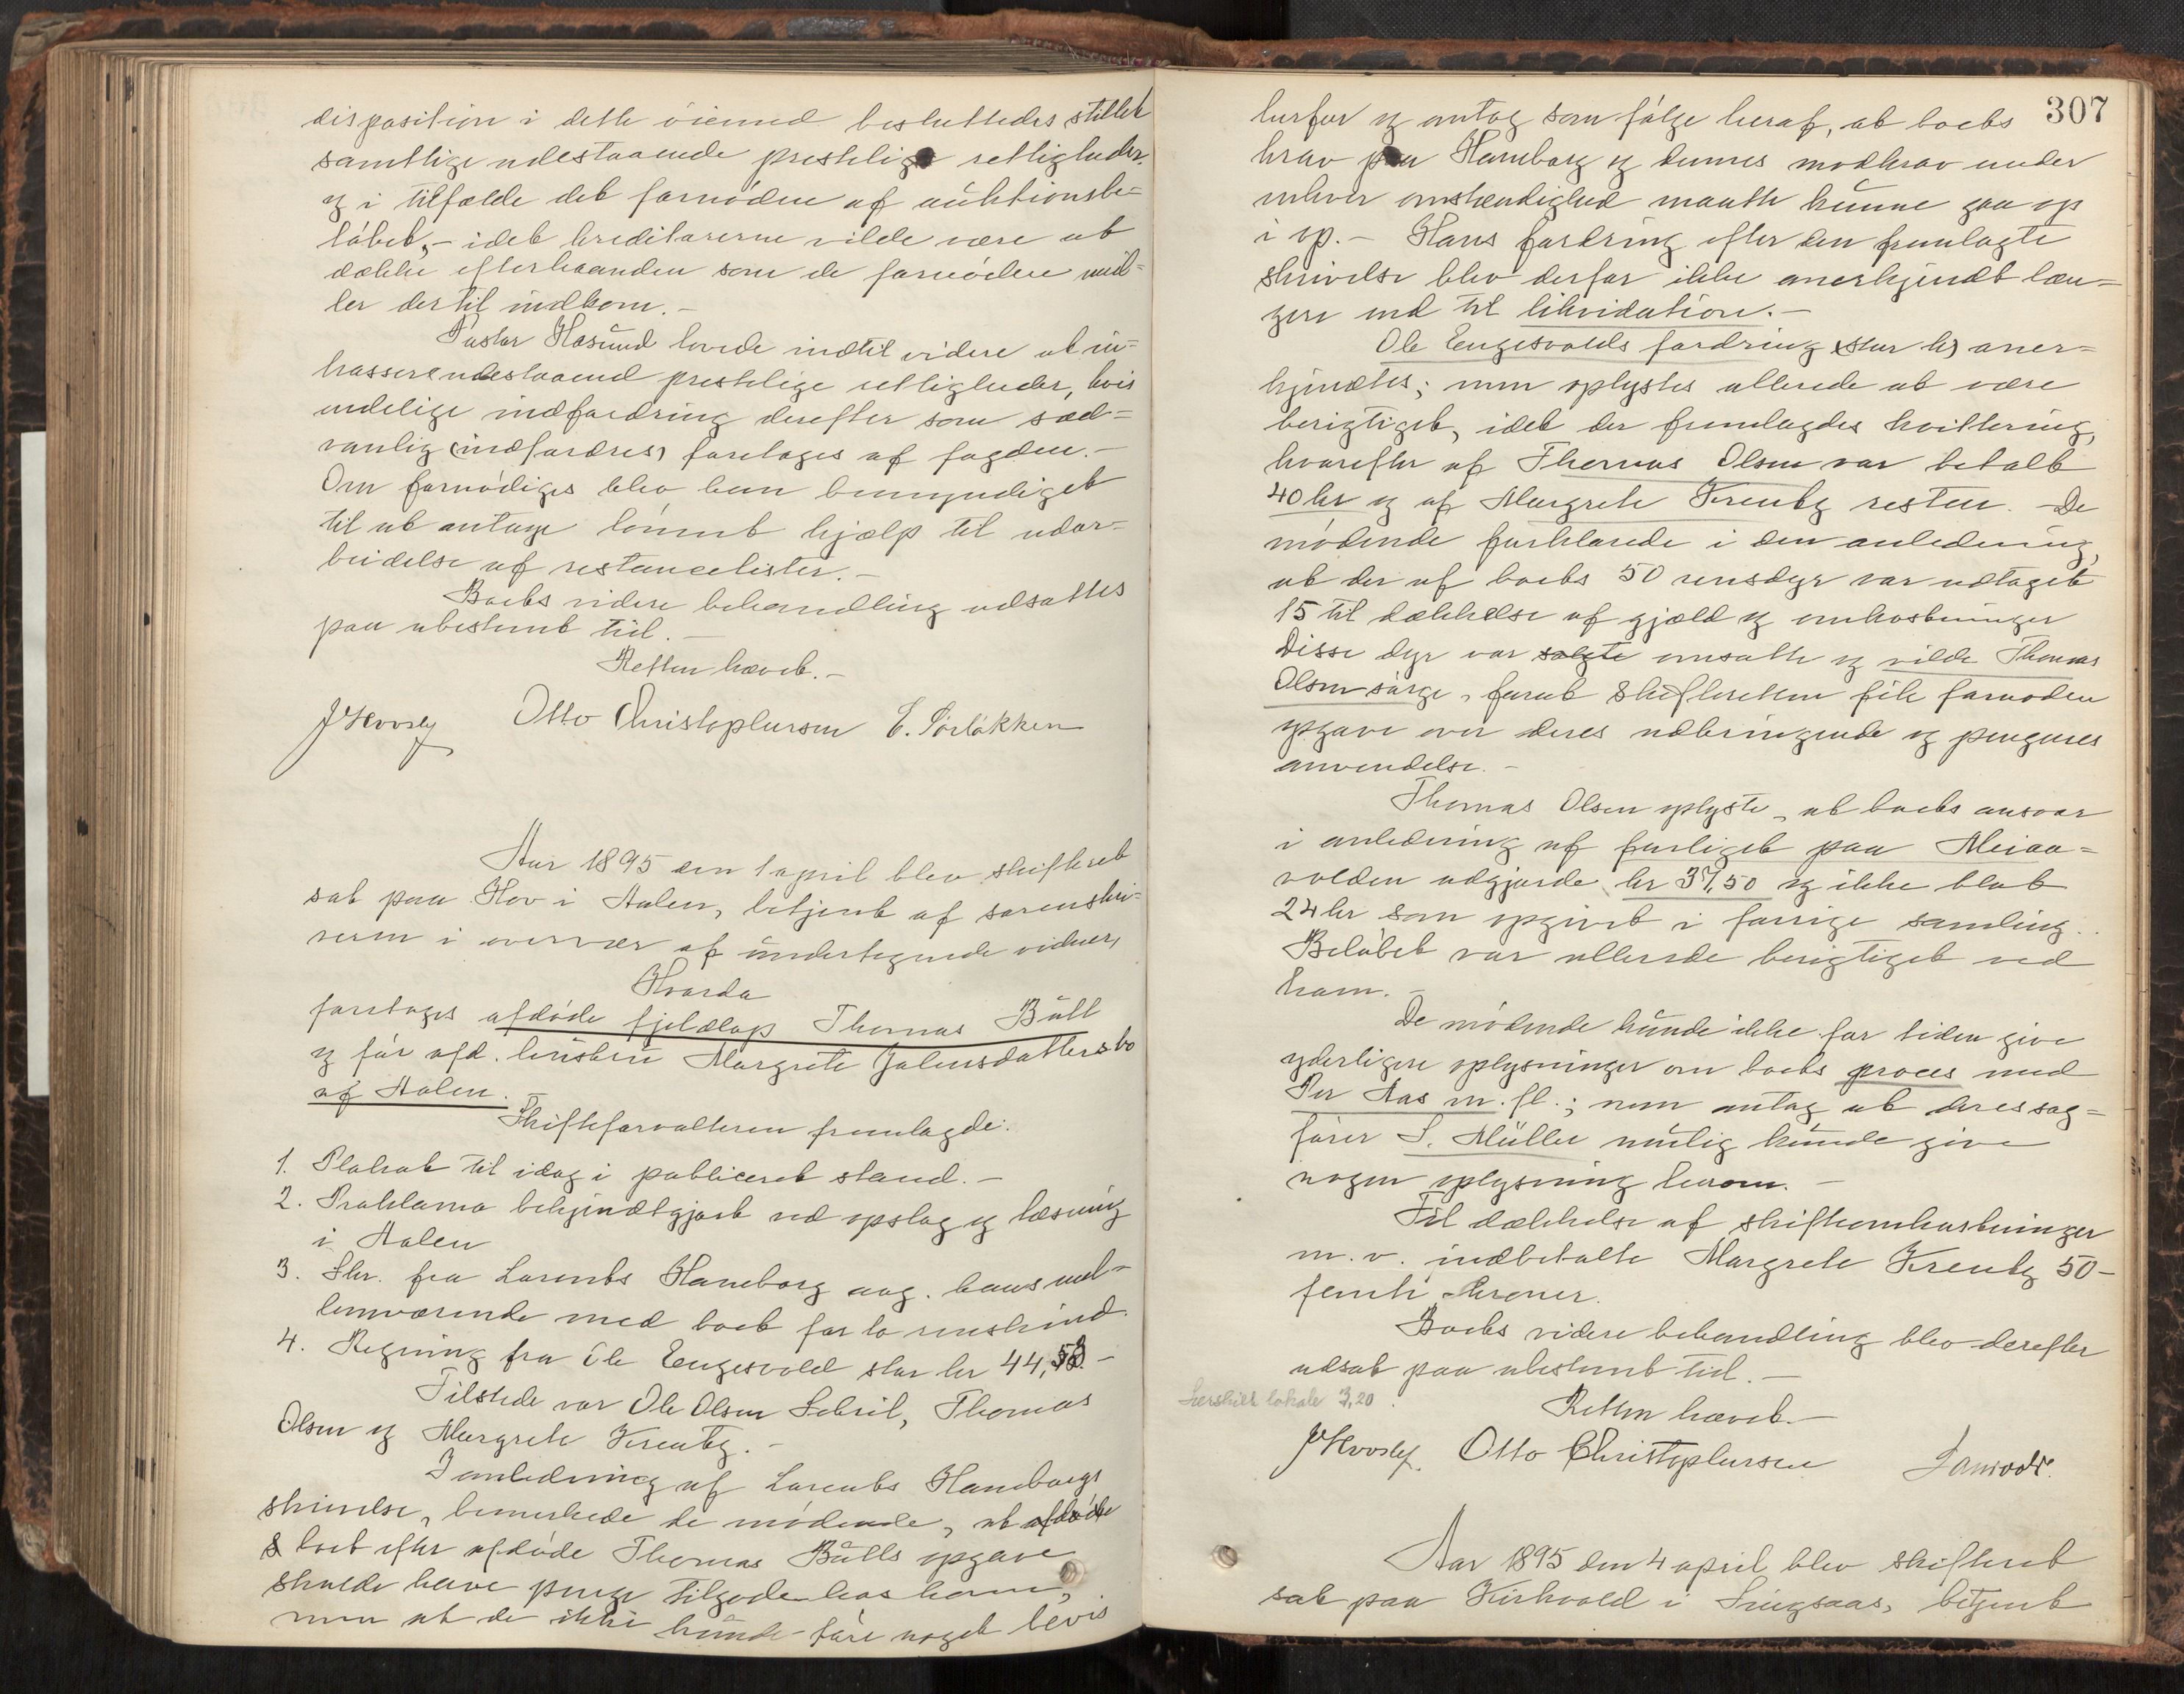 disposition i dette öiemed besluttedes stillet
samtlige udestaaende prestelige rettigheder
og i tilfælde det fornödne af auktionsbe-
löbet, - idet kreditorerne vilde være at
dække efterhaanden som de fornödne mid-
ler dertil indkom. -
Pastor Hasund lovede indtil videre at in-
kassere udestaaend prestelige rettigheder, hvis
endelige indfordring derefter som sæd-
vanlig (indfordres) foretages af fogden. -
Om fornödiges blev han bemyndiget
til at antage lönnet hjælp til udar-
beidelse af restancelister. -
Boets videre behandling udsattes
paa ubestemt tid. -
Retten hævet. -
Otto Christophersen E. Sörlökken
Aar 1895 den 1 april blev skifteret
sat paa Hov i Aalen, betjent af sorenskri-
veren i overvær af undertegnede vidner,
Hvorda
foretoges afdöde fjeldlap Thomas Bull
og för afd. hustru Margrete Johnsdatters bo
af Aalen.
Skifteforvalteren fremlagde:
1. Plakat til idag i publiceret stand. -
2. Proklama bekjendtgjort ved opslag og læsning
i Aalen
3. Skr. fra Lorents Haneborg ang. hans mel-
lemværende med boet for to renskind.
4. Regning fra Ole Engesvold stor kr 44,53 -
Tilstede var Ole Olsen Lebsil, Thomas
Olsen og Margrete Krentz. -
I anledning af Lorents Haneborgs
skrivelse, bemerkede de mödende, at afdöde
& boet efter afdöde Thomas Bulls opgave
skulde have penge tilgode hos ham,
men at de ikke kunde före noget bevis
307
herfor og antog som fölge heraf, at boets
krav paa Haneborg og dennes modkrav under
enhver omstendighed maatte kunne gaa op
i op. - Hans fordring efter den fremlagte
skrivelse blev derfor ikke anerkjendt læn-
gere end til likvidation. -
Ole Engesvolds fordring (stor kr) aner-
kjendtes; men oplystes allerede at være
berigtiget, idet der fremlagdes kvittering,
hvorefter af Thomas Olsen var betalt
40 kr og af Margrete Krentz resten. - De
mödende forklarede i den anledning,
at der af boets 50 rensdyr var udtaget
15 til dækkelse af gjæld og omkostninger
Disse dyr var solgte omsatte og vilde Thomas
Olsen sörge, forat skifteretten fik fornöden
opgave over deres udbringende og pengenes
anvendelse. -
Thomas Olsen oplyste, at boets ansvar
i anledning af forliget paa Meiaa-
volden udgjorde kr 37,50 og ikke blot
24 kr som opgivet i forrige samling.
Belöbet var allerede berigtiget ved
ham. -
De mödende kunde ikke for tiden give
yderligere oplysninger om boets proces med
Per Aas m. fl.; men antog at deres sag-
förer S. Müller mulig kunde give
nogen oplysning herom. -
Til dækkelse af skifteomkostninger
m. v. indbetalte Margrete Krentz 50 -
femti - kroner.
Boets videre behandling blev derefter
udsat paa ubestemt tid. -
Særskilt lokale 3,20
Retten hævet. -
Otto Christophersen
Aar 1895 den 4 april blev skifteret
sat paa Kirkvold i Singsaas, betjent